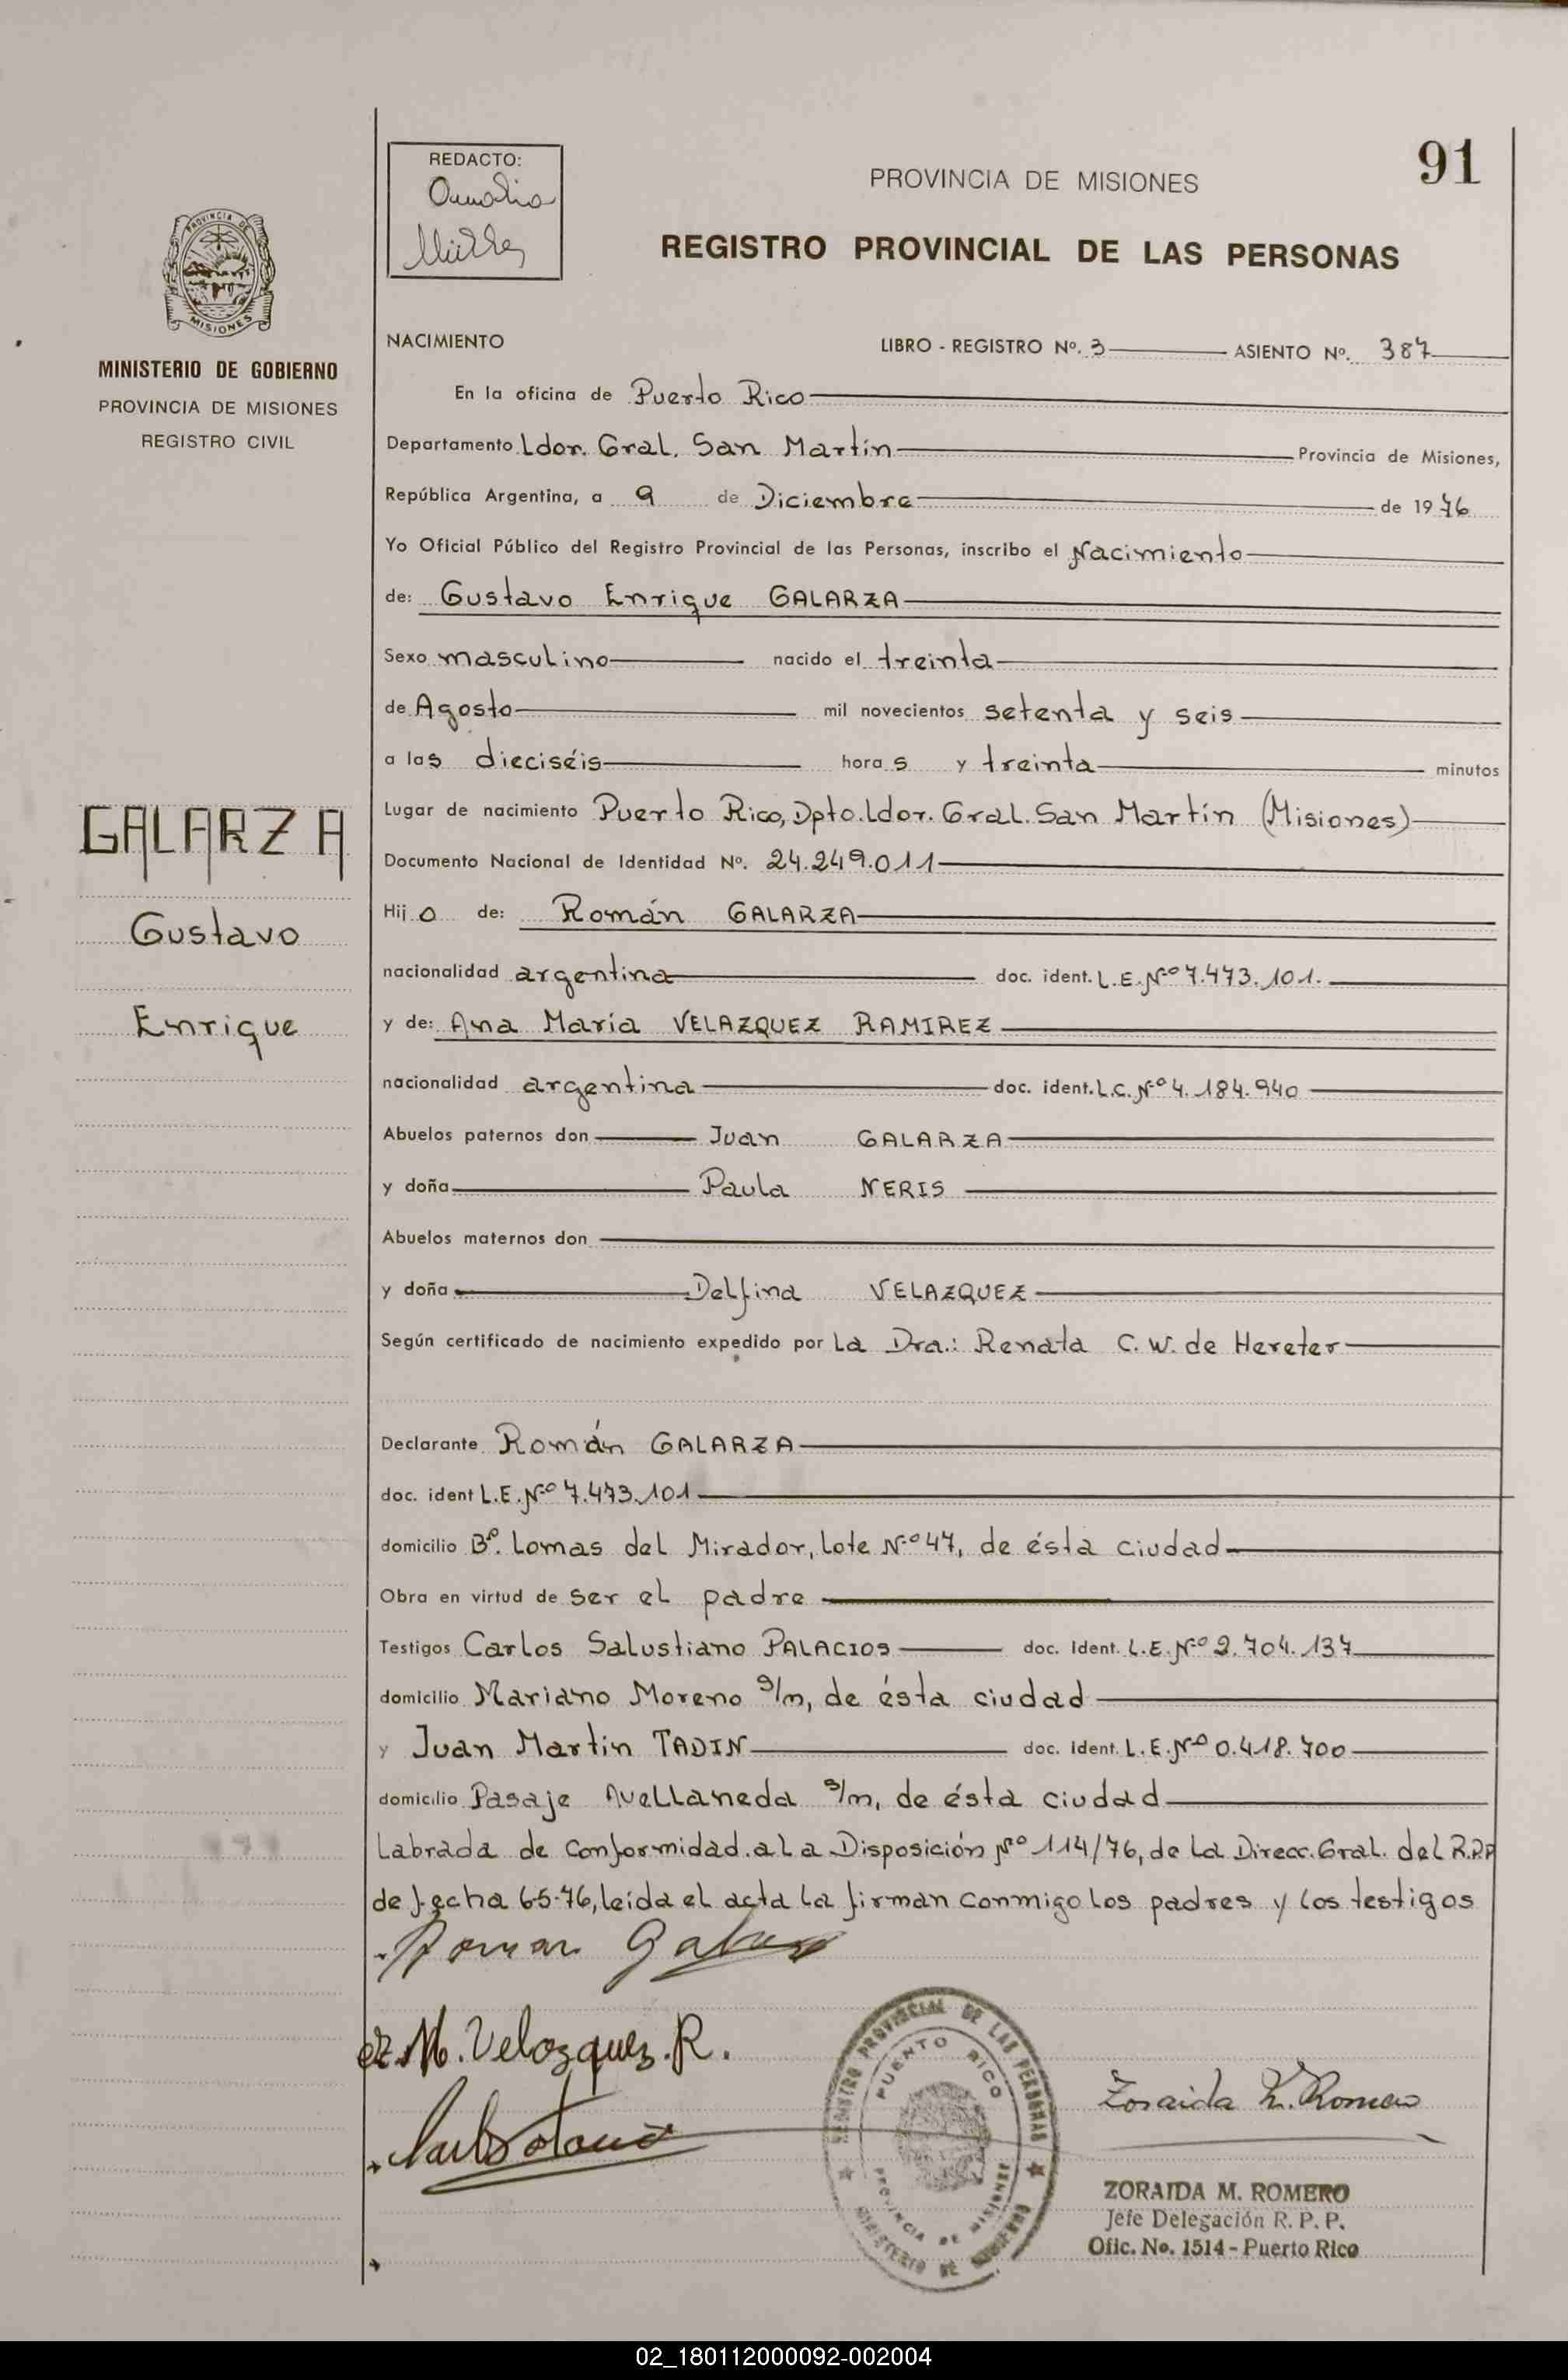 REDACTO:
PROVINCIA DE MISIONES
91
REGISTRO PROVINCIAL DE LAS PERSONAS
PROVINCIA DE
MISIONES
MINISTERIO DE GOBIERNO
PROVINCIA DE MISIONES
REGISTRO CIVIL
GALARZA
Gustavo
Enrique
NACIMIENTO LIBRO - REGISTRO Nº. 3 ASIENTO Nº. 387
En la oficina de Puerto Rico
Departamento Ldor. Gral. San Martín Provincia de Misiones,
República Argentina, a 9 de Diciembre de 1976
Yo Oficial Público del Registro Provincial de las Personas, inscribo el Nacimiento
de: Gustavo Enrique GALARZA
Sexo masculino nacido el treinta
de Agosto mil novecientos setenta y seis
a las dieciséis horas y treinta minutos
Lugar de nacimiento Puerto Rico, Dpto. Ldor. Gral. San Martín (Misiones)
Documento Nacional de Identidad Nº. 24.249.011
Hijo de: Román GALARZA
nacionalidad argentina doc. ident. L.E. Nº 7.473.101.
y de: Ana María VELAZQUEZ RAMIREZ
nacionalidad argentina doc. ident. L.C. Nº 4.184.940
Abuelos paternos don Juan GALARZA
y doña Paula NERIS
Abuelos maternos don
y doña Delfina VELAZQUEZ
Según certificado de nacimiento expedido por la Dra.: Renata C. W. de Hereter
Declarante Román GALARZA
doc. ident L.E. Nº 7.473.101
domicilio Bº. Lomas del Mirador, lote Nº 47, de ésta ciudad
Obra en virtud de ser el padre
Testigos Carlos Salustiano PALACIOS doc. Ident. L.E. Nº 2.704.137
domicilio Mariano Moreno s/n, de ésta ciudad
y Juan Martin TADIN doc. Ident. L.E. Nº 0.418.700
domicilio Pasaje Avellaneda s/n, de ésta ciudad
Labrada de conformidad a la Disposición Nº 114/76, de la Direcc. Gral. del R.P.P
de fecha 6-5-76, leída el acta la firman conmigo los padres y los testigos
Roman Galarza
M. Velazquez. R.
REGISTRO PROVINCIAL DE LAS PERSONAS
PUERTO RICO
PROVINCIA DE MISIONES
MINISTERIO DE GOBIERNO
Zoraida M. Romero
ZORAIDA M. ROMERO
Jefe Delegación R. P. P.
Ofic. No. 1514 - Puerto Rico
02_180112000092-002004